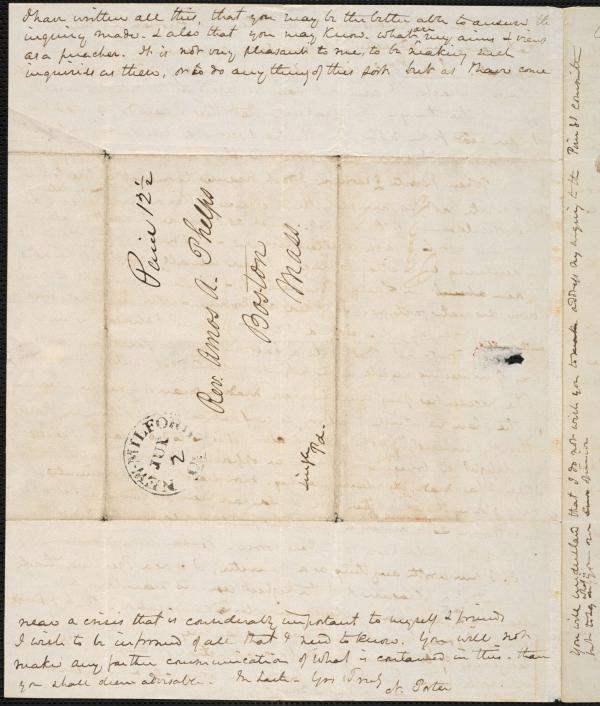 I have written all this, that you may be the better able to answer the
inquiry made. & also that you may know what are my aims & views
as a preacher. It is not very pleasant to me, to be making such
inquiries as these, or to do anything of this sort but as I have come
Paid 12½
Rev. Amos A. Phelps
Boston
Mass.
NEW-MILFORD
JUN
2
Single Pd.
near a crisis that is considerably important to myself & friends
I wish to be informed of all that I need to know. You will not
make any farther communication of what is contained in this than
you shall deem advisable. In haste - Yrs truly
N. Porter
You will understand that I do not wish you to make address my inquiry to the committee
but to say your own opinion